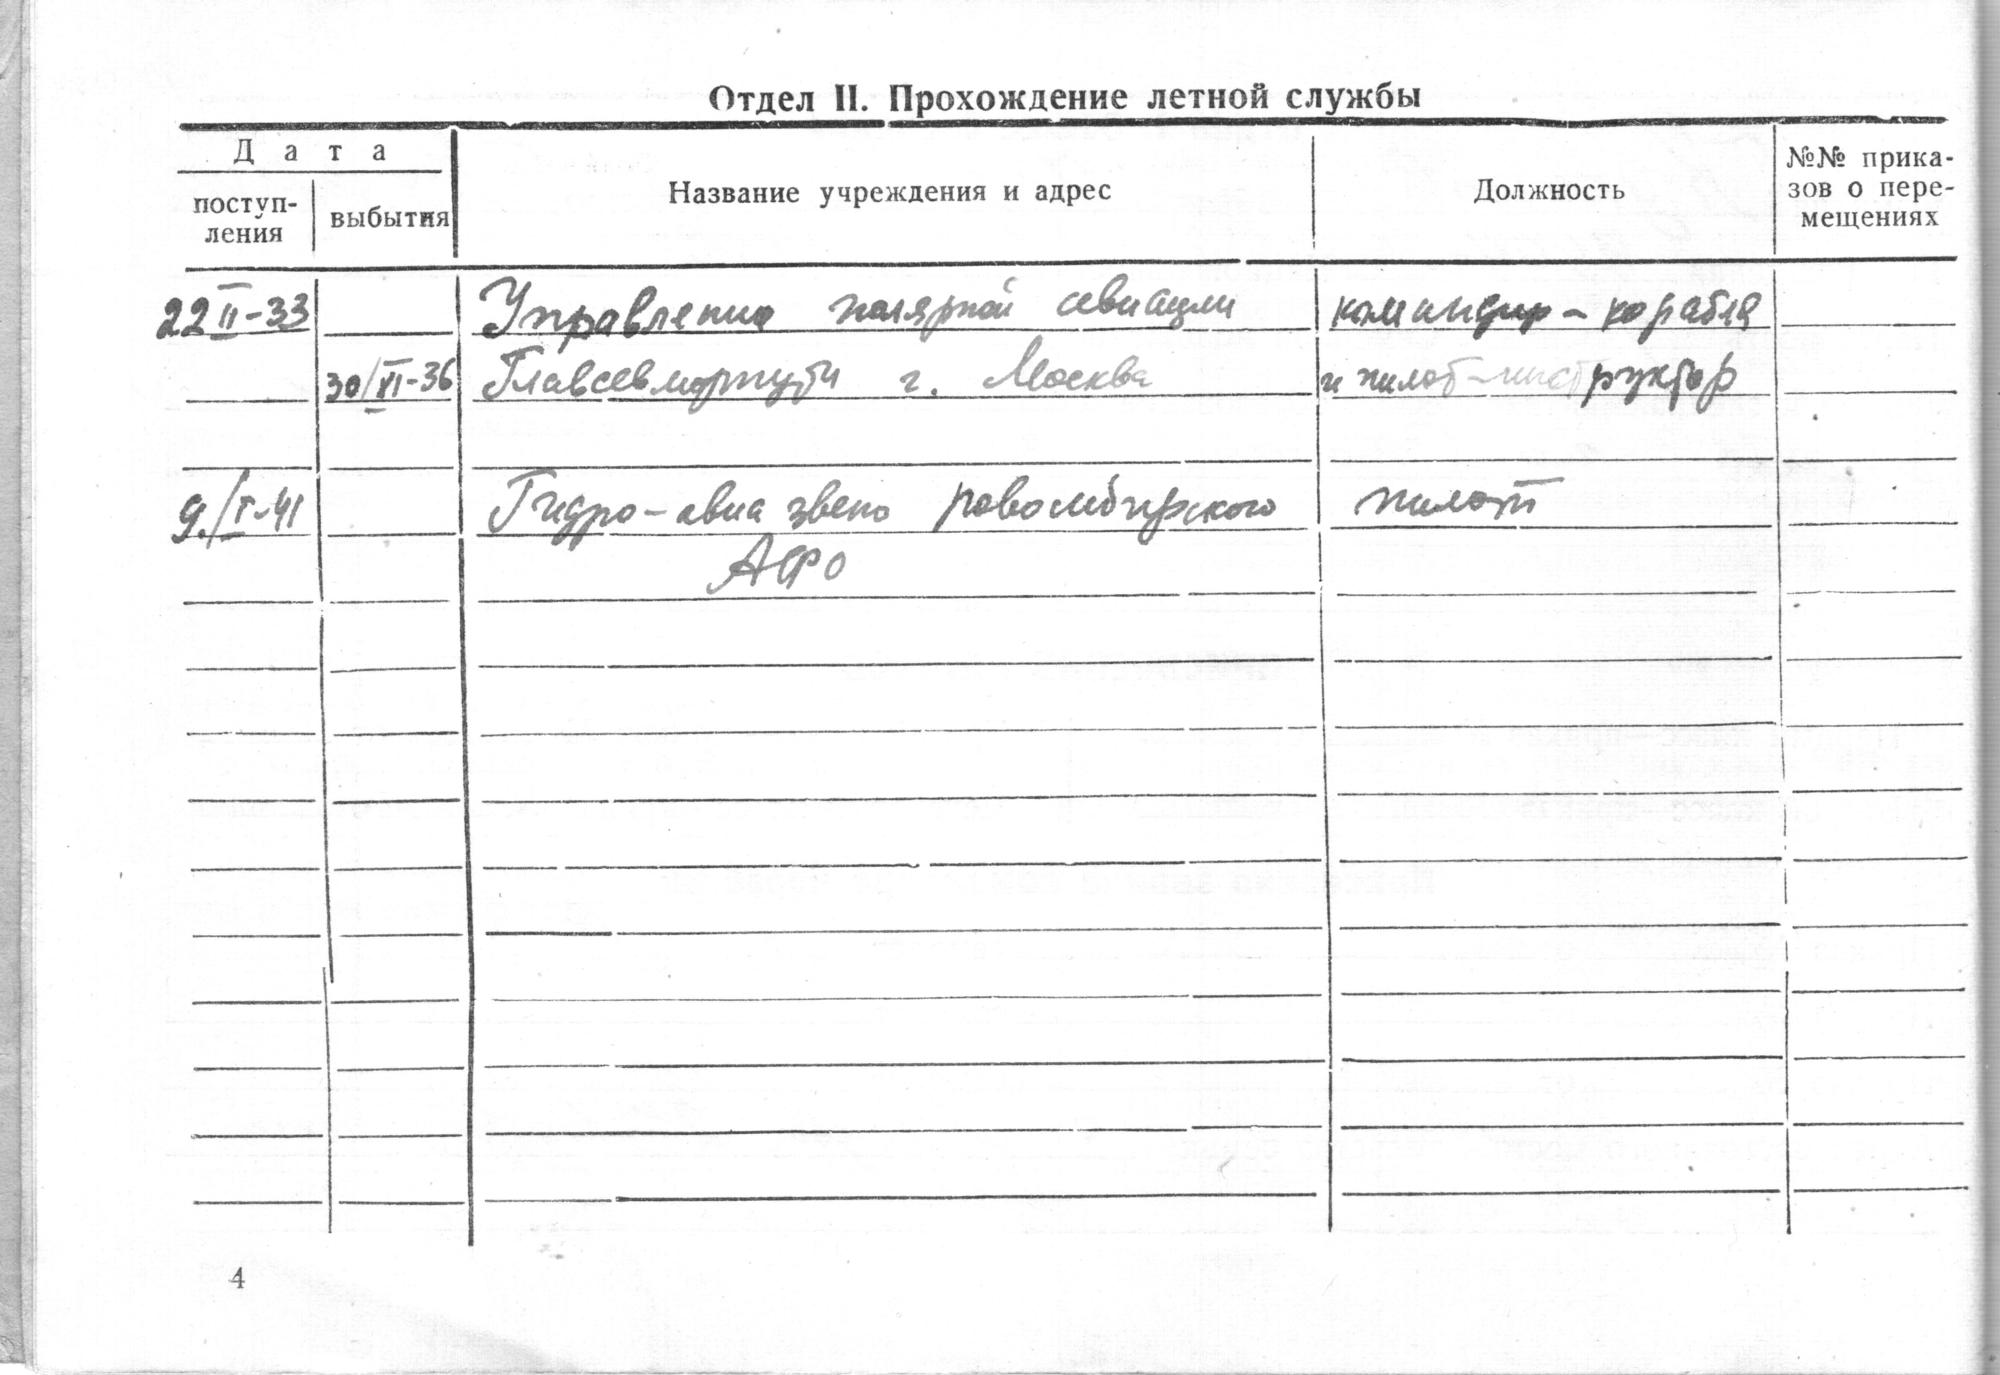 Отдел II. Прохождение летной службы
Дата
поступ-
ления
выбытия
Название учреждения и адрес
Должность
№№ прика-
зов о пере-
мещениях
22 II-33 Управление полярной авиации командир-корабля
30/XI-36 Главсевморпути г. Москва и пилот-инструктор
9./I-41 Гидро-авиа звено Новосибирского пилот
АФО
4